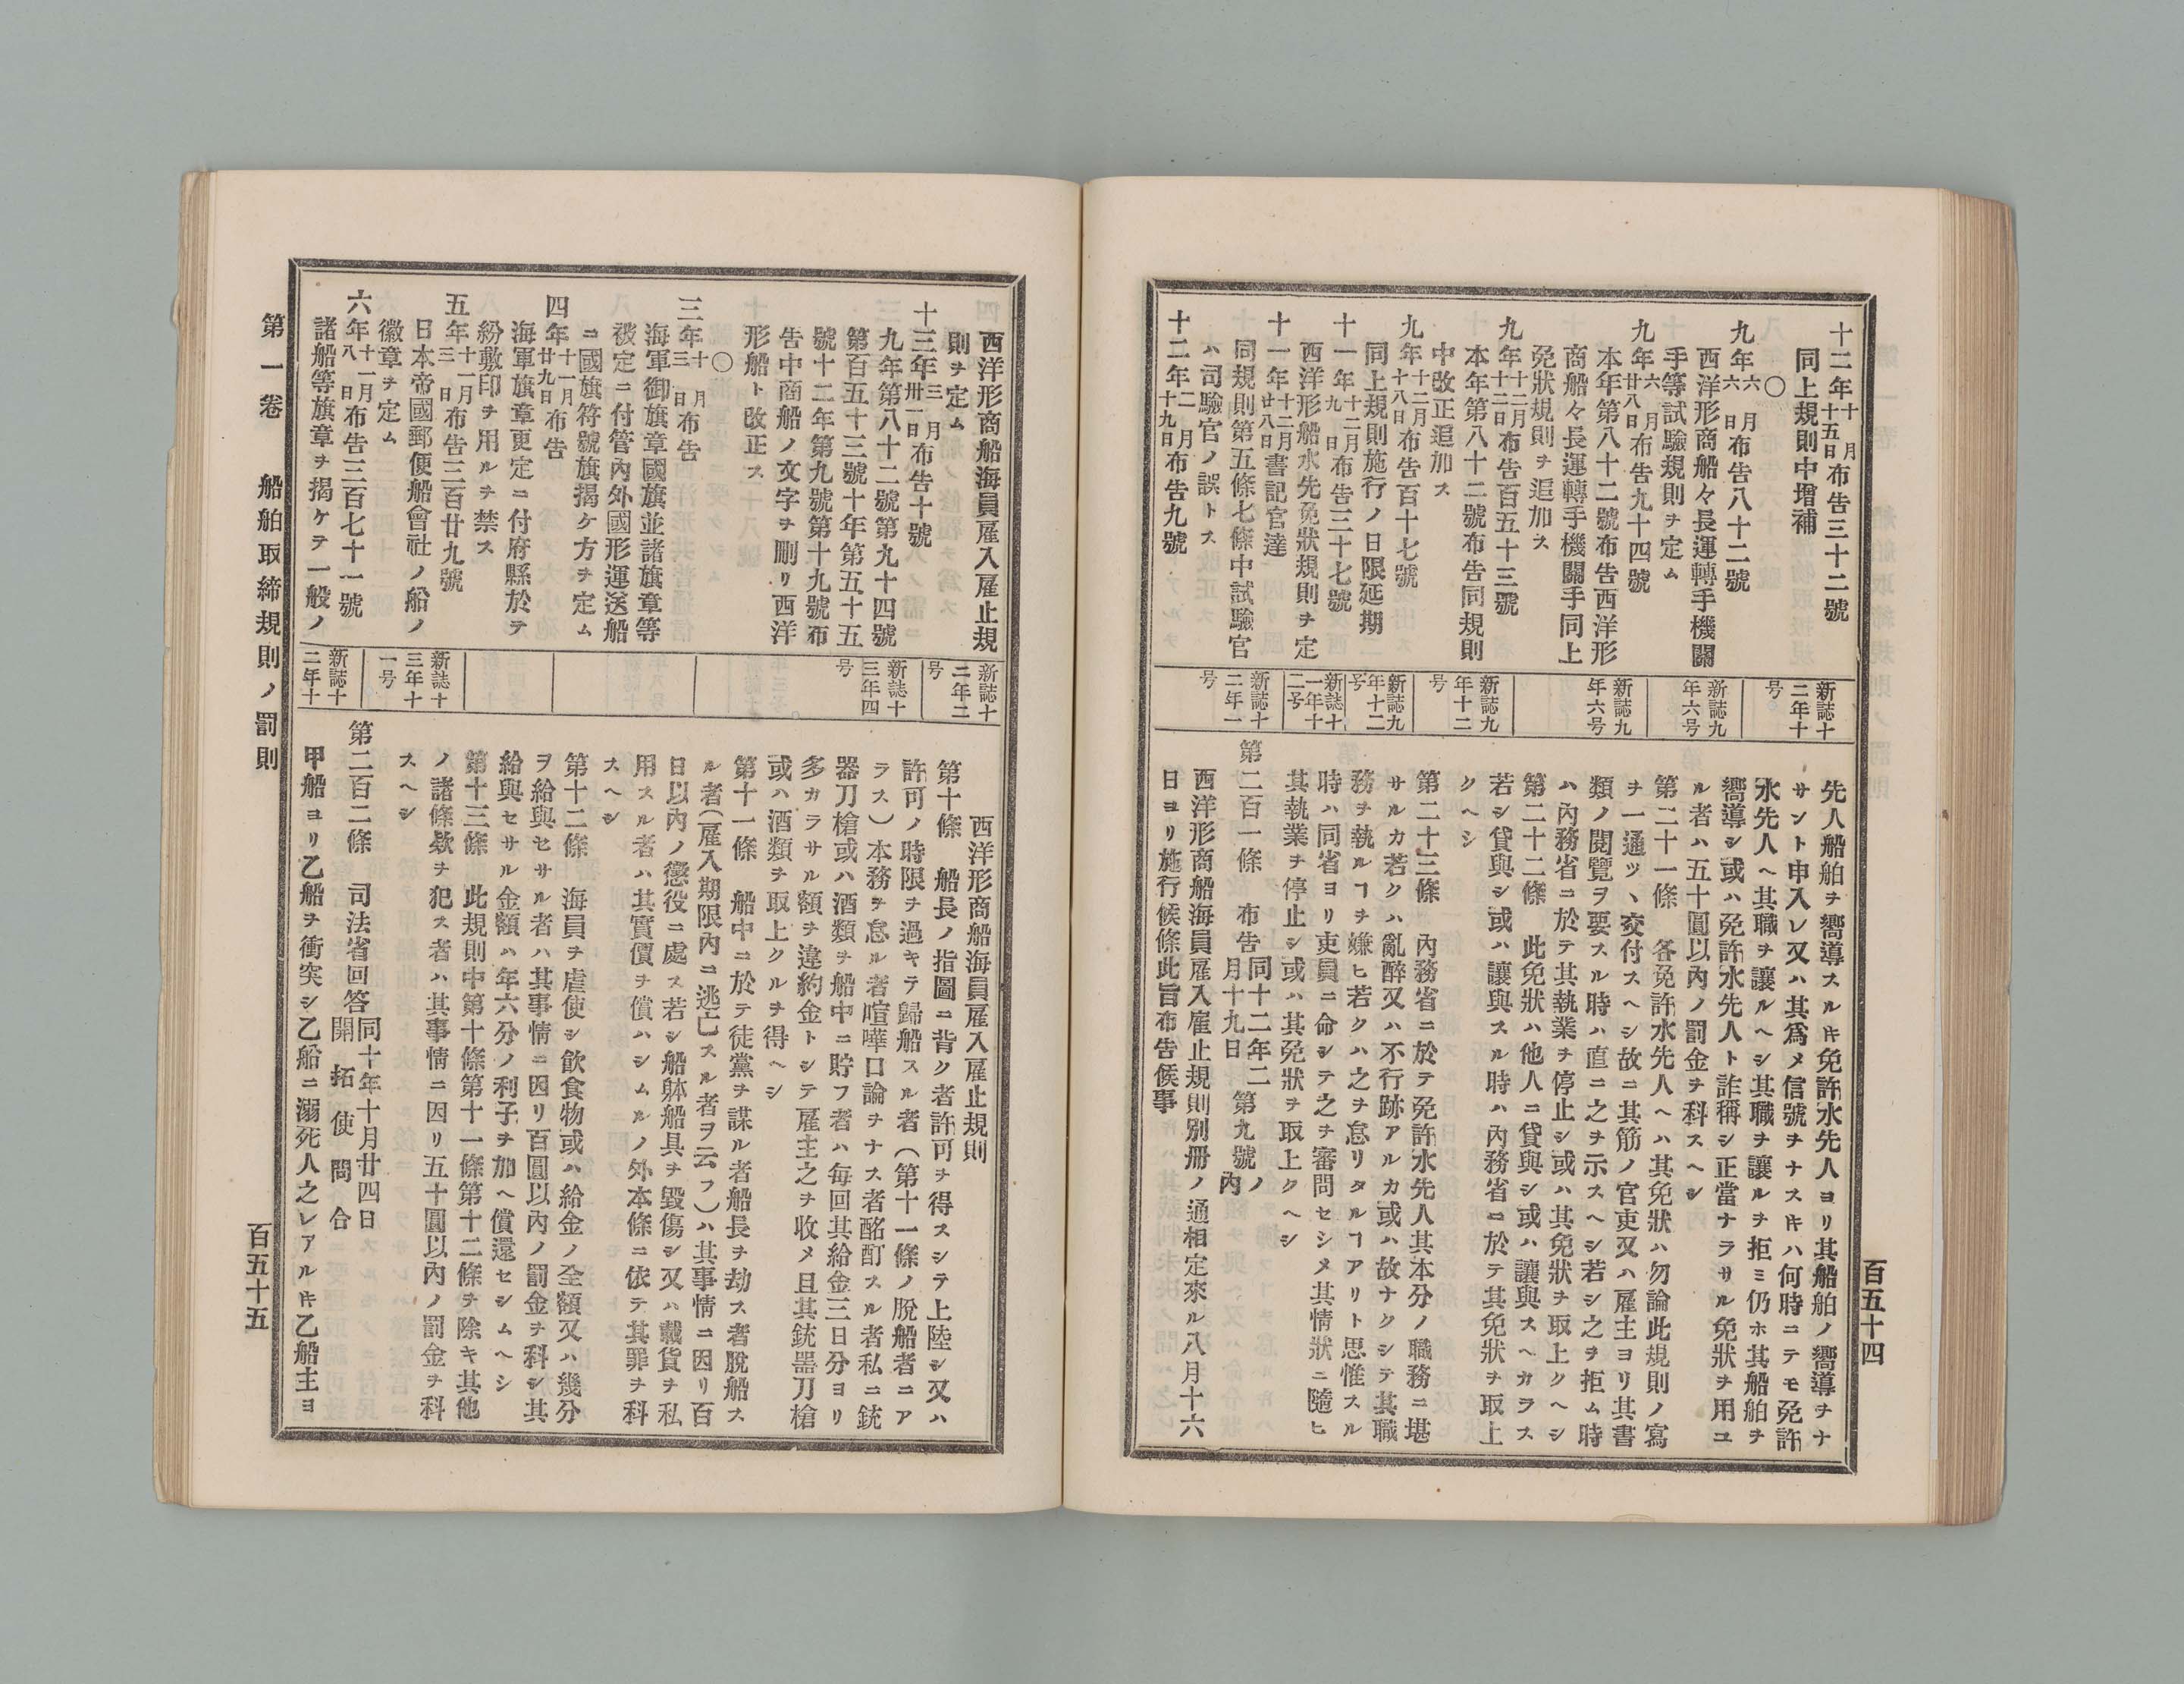 百五十四
十二年十月十五日布告三十二號
同上規則中增補
〇
九年六月六日布告八十二號
西洋形商船々長運轉手機關
手等試驗規則ヲ定ム
九年六月廿八日布告九十四號
本年第八十二號布告西洋形
商船々長運轉手機關手同上
免狀規則ヲ追加ス
九年十二月十二日布告百五十三號
本年第八十二號布告同規則
中改正追加ス
九年十二月十八日布告百十七號
同上規則施行ノ日限延期
十一年十二月九日布告三十七號
西洋形船水先免狀規則ヲ定
十一年十二月廿八日書記官達
同規則第五條七條中試驗官
ハ司驗官ノ誤トス
十二年二月十九日布告九號
新誌十
二年十
号
新誌九
年六号
新誌九
年六号
新誌九
年十二
号
新誌九
年十二
号
新誌十
一年十
二号
新誌十
二年一
号
先人船舶ヲ嚮導スルキ免許水先人ヨリ其船舶ノ嚮導ヲナ
サント申入レ又ハ其爲メ信號ヲナスキハ何時ニテモ免許
水先人ヘ其職ヲ讓ルヘシ其職ヲ讓ルヲ拒ミ仍ホ其船舶ヲ
嚮導シ或ハ免許水先人ト詐稱シ正當ナラサル免狀ヲ用ユ
ル者ハ五十圓以內ノ罰金ヲ科スヘシ
第二十一條　各免許水先人ヘハ其免狀ハ勿論此規則ノ寫
ヲ一通ツヽ交付スヘシ故ニ其筋ノ官吏又ハ雇主ヨリ其書
類ノ閱覽ヲ要スル時ハ直ニ之ヲ示スヘシ若シ之ヲ拒ム時
ハ內務省ニ於テ其執業ヲ停止シ或ハ其免狀ヲ取上クヘシ
第二十二條　此免狀ハ他人ニ貸與シ或ハ讓與スヘカラス
若シ貸與シ或ハ讓與スル時ハ內務省ニ於テ其免狀ヲ取上
クヘシ
第二十三條　內務省ニ於テ免許水先人其本分ノ職務ニ堪
サルカ若クハ亂醉又ハ不行跡アルカ或ハ故ナクシテ其職
務ヲ執ルヿヲ嫌ヒ若クハ之ヲ怠リタルヿアリト思惟スル
時ハ同省ヨリ吏員ニ命シテ之ヲ審問セシメ其情狀ニ隨ヒ
其執業ヲ停止シ或ハ其免狀ヲ取上クヘシ
第二百一條　布告同十二年二月十九日　第九號ノ內
西洋形商船海員雇入雇止規則別冊ノ通相定來ル八月十六
日ヨリ施行候條此旨布告候事
西洋形商船海員雇入雇止規
則ヲ定ム
十三年三月卅一日布告十號
九年第八十二號第九十四號
第百五十三號十年第五十五
號十二年第九號第十九號布
告中商船ノ文字ヲ刪リ西洋
形船ト改正ス
〇
三年十月三日布告
海軍御旗章國旗並諸旗章等
被定ニ付管內外國形運送船
ニ國旗符號旗揭ケ方ヲ定ム
四年十一月廿九日布告
海軍旗章更定ニ付府縣於テ
紛敷印ヲ用ルヲ禁ス
五年十一月三日布告三百廿九號
日本帝國郵便船會社ノ船ノ
徽章ヲ定ム
六年十一月八日布告三百七十一號
諸船等旗章ヲ揭ケテ一般ノ
新誌十
二年二
号
新誌十
三年四
号
新誌十
三年十
一号
新誌十
二年十
西洋形商船海員雇入雇止規則
第十條　船長ノ指圖ニ背ク者許可ヲ得スシテ上陸シ又ハ
許可ノ時限ヲ過キテ歸船スル者（第十一條ノ脫船者ニア
ラス）本務ヲ怠ル者喧嘩口論ヲナス者酩酊スル者私ニ銃
器刀槍或ハ酒類ヲ船中ニ貯フ者ハ每回其給金三日分ヨリ
多カラサル額ヲ違約金トシテ雇主之ヲ收メ且其銃器刀槍
或ハ酒類ヲ取上クルヲ得ヘシ
第十一條　船中ニ於テ徒黨ヲ謀ル者船長ヲ劫ス者脫船ス
ル者（雇入期限內ニ逃亡スル者ヲ云フ）ハ其事情ニ因リ百
日以內ノ懲役ニ處ス若シ船躰船具ヲ毀傷シ又ハ載貨ヲ私
用スル者ハ其實價ヲ償ハシムルノ外本條ニ依テ其罪ヲ科
スヘシ
第十二條　海員ヲ虐使シ飮食物或ハ給金ノ全額又ハ幾分
ヲ給與セサル者ハ其事情ニ因リ百圓以內ノ罰金ヲ科シ其
給與セサル金額ハ年六分ノ利子ヲ加ヘ償還セシムヘシ
第十三條　此規則中第十條第十一條第十二條ヲ除キ其他
ノ諸條欵ヲ犯ス者ハ其事情ニ因リ五十圓以內ノ罰金ヲ科
スヘシ
第二百二條　司法省回答同十年十月廿四日開拓使問合
甲船ヨリ乙船ヲ衝突シ乙船ニ溺死人之レアルキ乙船主ヨ
第一卷　船舶取締規則ノ罰則
百五十五